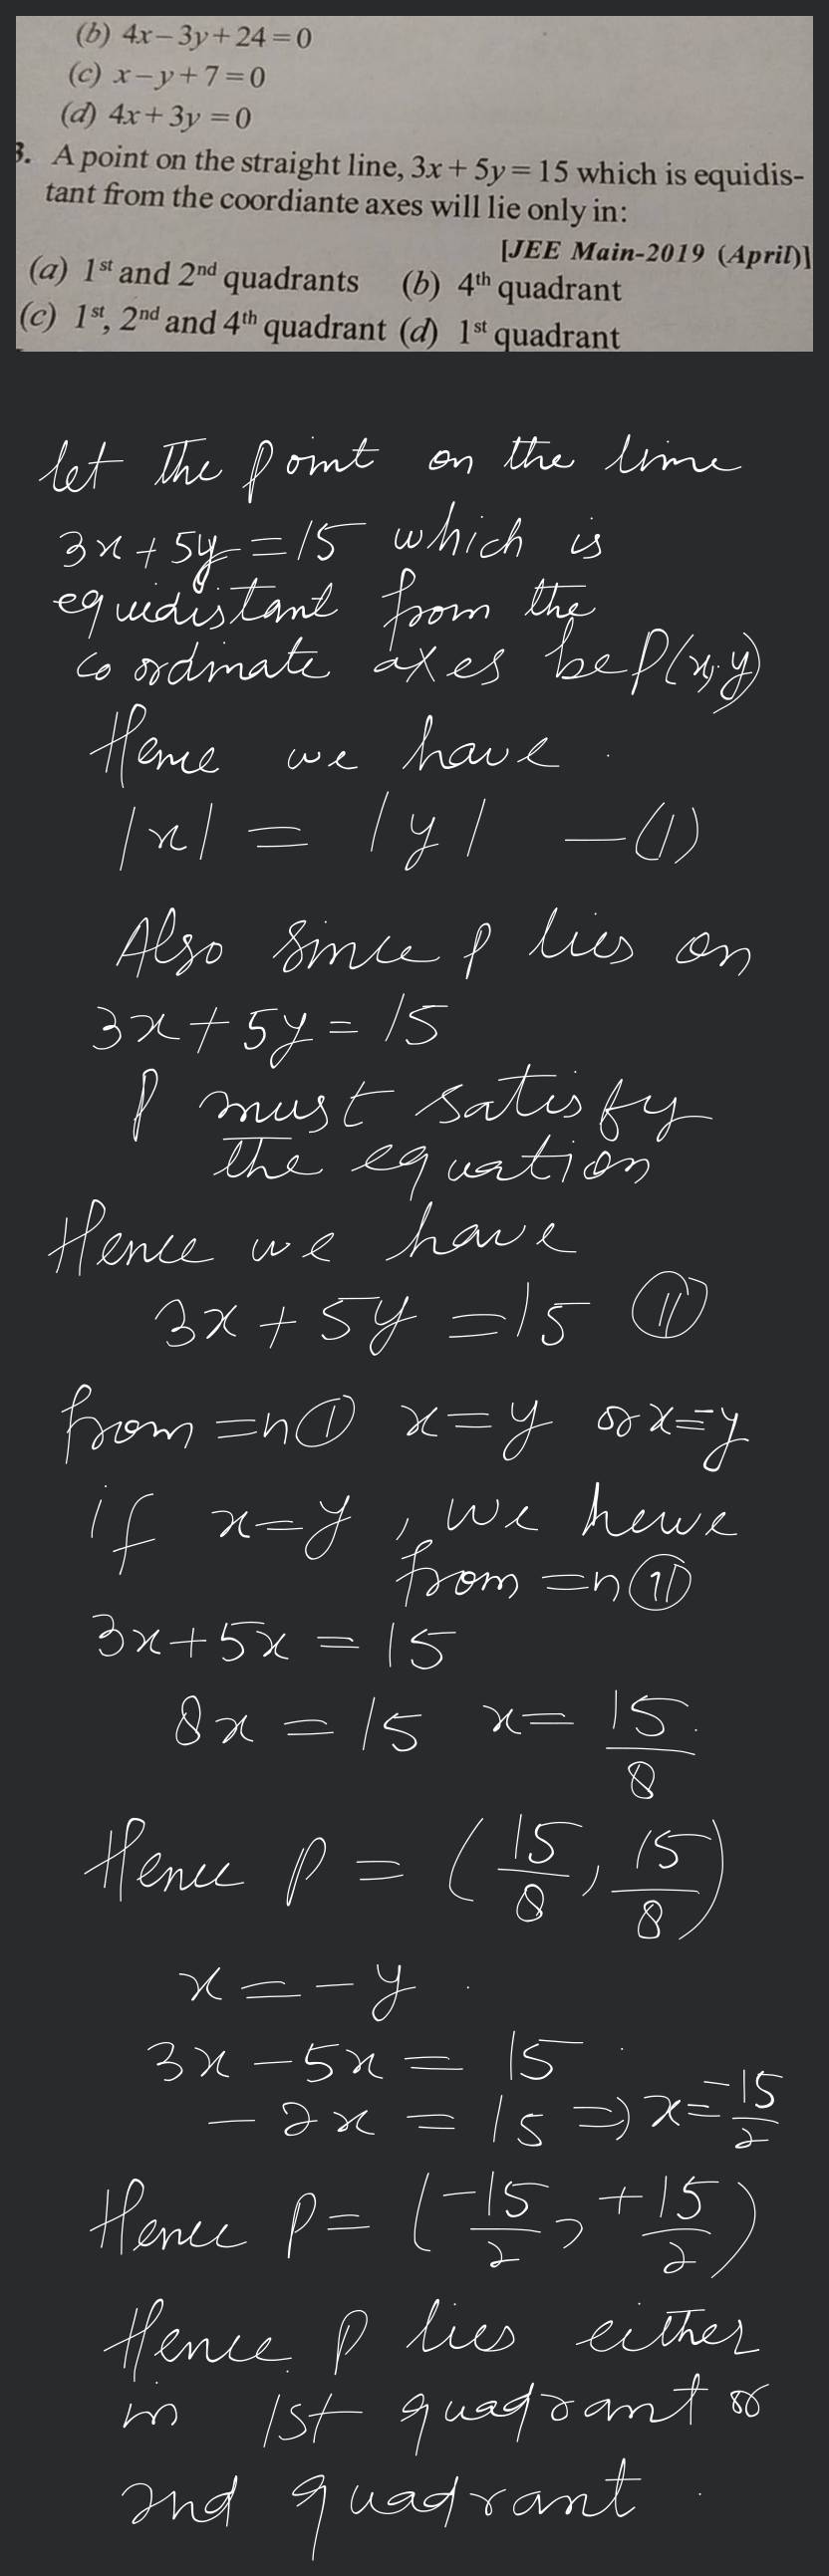 (b) 4x–3y+24=0
(c) x–y+7=0
(d) 4x+3y =0
3. A point on the straight line, 3x+5y=15 which is equidis-
tant from the coordiante axes will lie only in:
[JEE Main-2019 (April)]
(a) 1st and 2nd quadrants (b) 4th quadrant
(c) 1st, 2nd and 4th quadrant (d) 1st quadrant
let the point on the line
3x+5y=15 which is
equidistant from the
coordinate axes be P(x,y)
Hence we have
|x| = |y| —(1)
Also since P lies on
3x+5y=15
P must satisfy
the equation
Hence we have
3x+5y=15 (11)
from =n(1) x=y or x=-y
if x=y, we have
from =n(11)
3x+5x=15
8x=15 x=15/8
Hence P=(15/8, 15/8)
x=-y.
3x-5x=15
-2x=15⇒x=-15/2
Hence P=(-15/2, +15/2)
Hence P lies either
in 1st quadrant or
2nd quadrant.